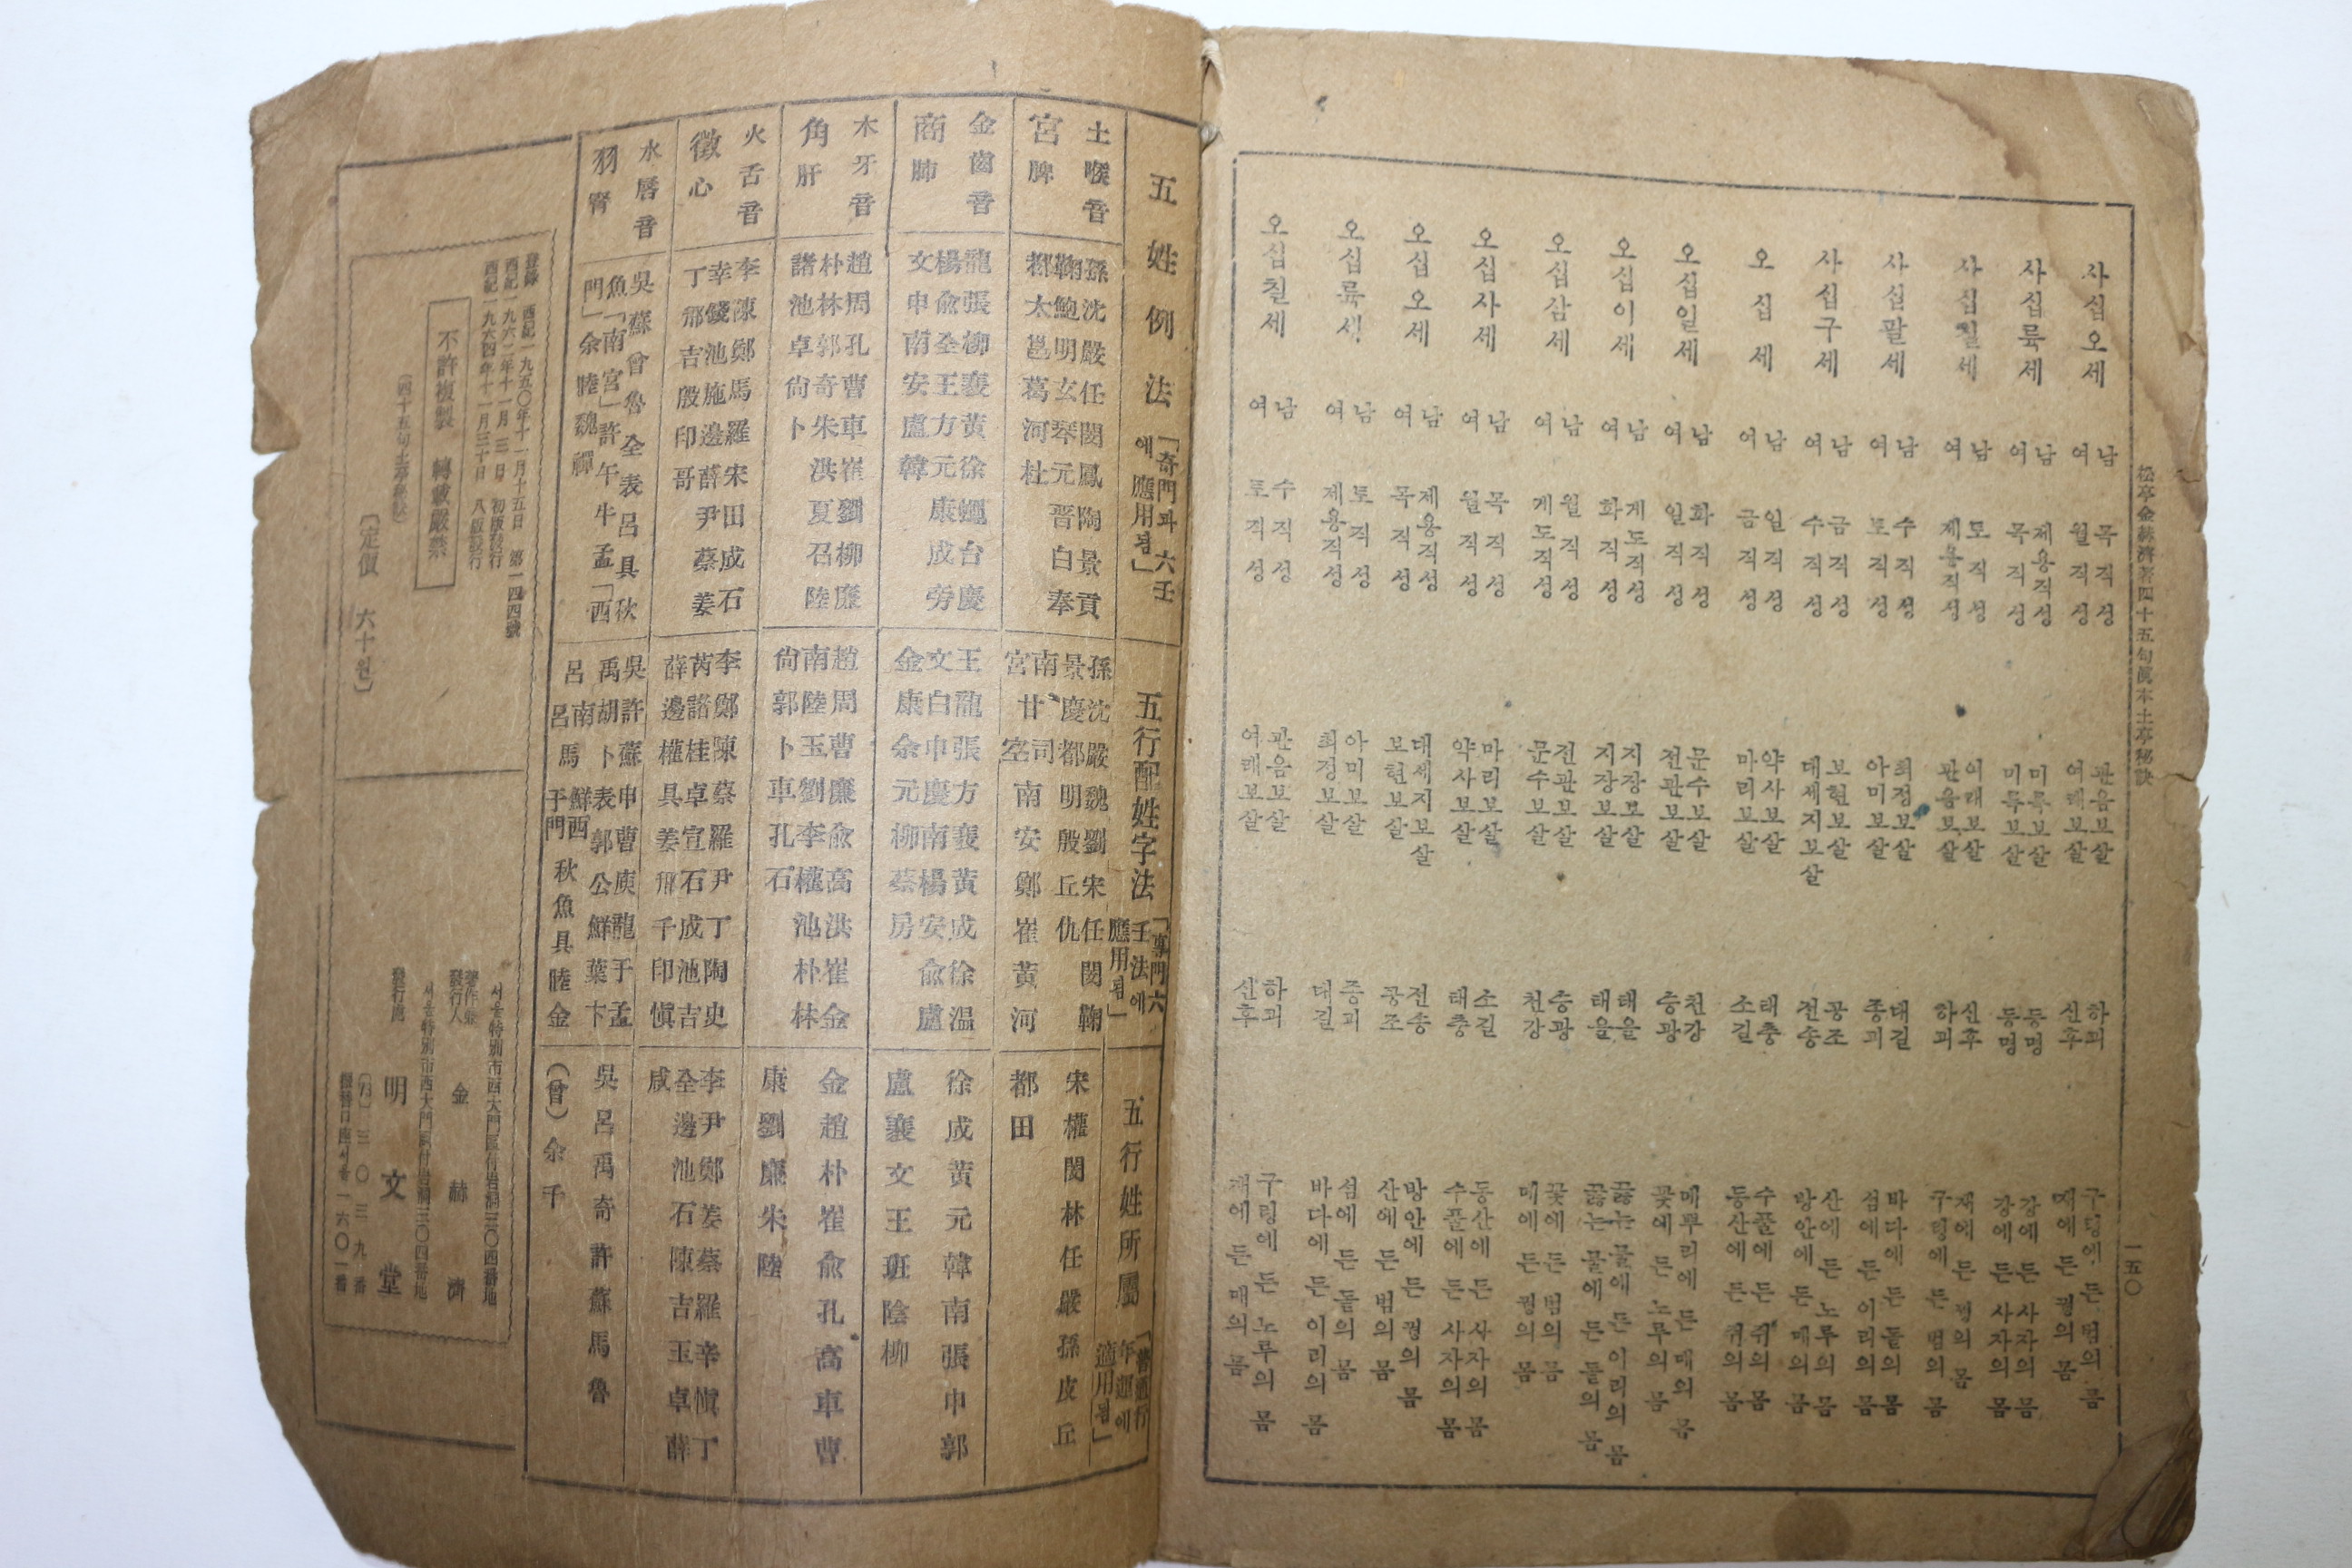 松亭金赫濟著四十五句眞本土亭秘訣 一五〇
사십오세 남 목직성 관음보살 하괴 구렁에 든 범의 몸
여 월직성 여래보살 신후 재에 든 꿩의 몸
사십륙세 남 제용직성 미륵보살 등명 강에 든 사자의 몸
여 목직성 미륵보살 등명 강에 든 사자의 몸
사십칠세 남 토직성 여래보살 신후 재에 든 꿩의 몸
여 제용직성 관음보살 하괴 구렁에 든 범의 몸
사십팔세 남 수직성 최정보살 대길 바다에 든 돝의 몸
여 토직성 아미보살 종괴 섬에 든 이리의 몸
사십구세 남 금직성 보현보살 공조 산에 든 노루의 몸
여 수직성 대세지보살 전송 방안에 든 매의 몸
오십세 남 일직성 약사보살 태충 수풀에 든 쥐의 몸
여 금직성 마리보살 소길 동산에 든 쥐의 몸
오십일세 남 화직성 문수보살 천강 메뿌리에 든 매의 몸
여 일직성 전관보살 승광 꽃에 든 노루의 몸
오십이세 남 게도직성 지장보살 태을 끓는 물에 든 이리의 몸
여 화직성 지장보살 태을 끓는 물에 든 돝의 몸
오십삼세 남 월직성 전관보살 승광 꽃에 든 범의 몸
여 게도직성 문수보살 천강 메에 든 꿩의 몸
오십사세 남 목직성 마리보살 소길 동산에 든 사자의 몸
여 월직성 약사보살 태충 수풀에 든 사자의 몸
오십오세 남 제용직성 대세지보살 전송 방안에 든 꿩의 몸
여 목직성 보현보살 공조 산에 든 범의 몸
오십륙세 남 토직성 아미보살 종괴 섬에 든 돝의 몸
여 제용직성 최정보살 대길 바다에 든 이리의 몸
오십칠세 남 수직성 관음보살 하괴 구렁에 든 노루의 몸
여 토직성 여래보살 신후 재에 든 매의 몸
五姓例法
「奇門과 六壬
에 應用됨」
土喉音
宮脾
孫沈嚴任閔鳳陶景貢
鞠鮑明玄琴元晋白奉
都太邕葛河杜
金齒音
商肺
龍張柳襄黃徐 台慶
楊兪全王方元康成旁
文申南安盧韓
木牙音
角肝
趙周孔曹車崔劉柳廉
朴林郭奇朱洪夏召陸
諸池卓尙卜
火舌音
徵心
李陳鄭馬羅宋田成石
幸錢池施邊薛尹蔡姜
丁邢吉殷印哥
水唇音
羽腎
吳蘇曾魯全表呂具秋
魚「南宮」許午牛孟「西
門」余睦魏禪
五行配姓字法
「專門六
壬法에
應用됨」
孫沈嚴魏劉宋任閔鞠
景慶都明殷丘仇
南 司南安鄭崔黃河
宮甘空
王龍張方襄黃成徐溫
文白申慶南楊安兪盧
金康余元柳蔡房
趙周曹廉兪高洪崔金
南陸玉劉李權池朴林
尙郭卜車孔石
李鄭陳蔡羅尹丁陶史
芮諸桂卓宣石成池吉
薛邊權具姜邢千印愼
吳許蘇申曹庾龍于孟
禹胡卜表郭公鮮葉卞
呂南 鮮西
呂馬于門秋魚具睦金
五行姓所屬
「普通行
年運에
適用됨」
宋權閔林任嚴孫皮丘
都田
徐成黃元韓南張申郭
盧襄文王班陰柳
金趙朴崔兪孔高車曹
康劉廉朱陸
李尹鄭姜蔡羅辛愼丁
全邊池石陳吉玉卓薛
咸
吳呂禹奇許蘇馬魯
(曾)余千
登錄 西紀一九五〇年十一月十五日 第一四四號
西紀一九六二年十一月三日 初版發行
西紀一九六四年十一月三十日 八版發行
不許複製 轉載嚴禁
(四十五句土亭秘訣)
〔定價 六十원〕
서울特別市西大門區付岩洞三〇四番地
著作兼
發行人 金赫濟
서울特別市西大門區付岩洞三〇四番地
發行處 明文堂
三〇三九番
振替口座서울一六〇一番